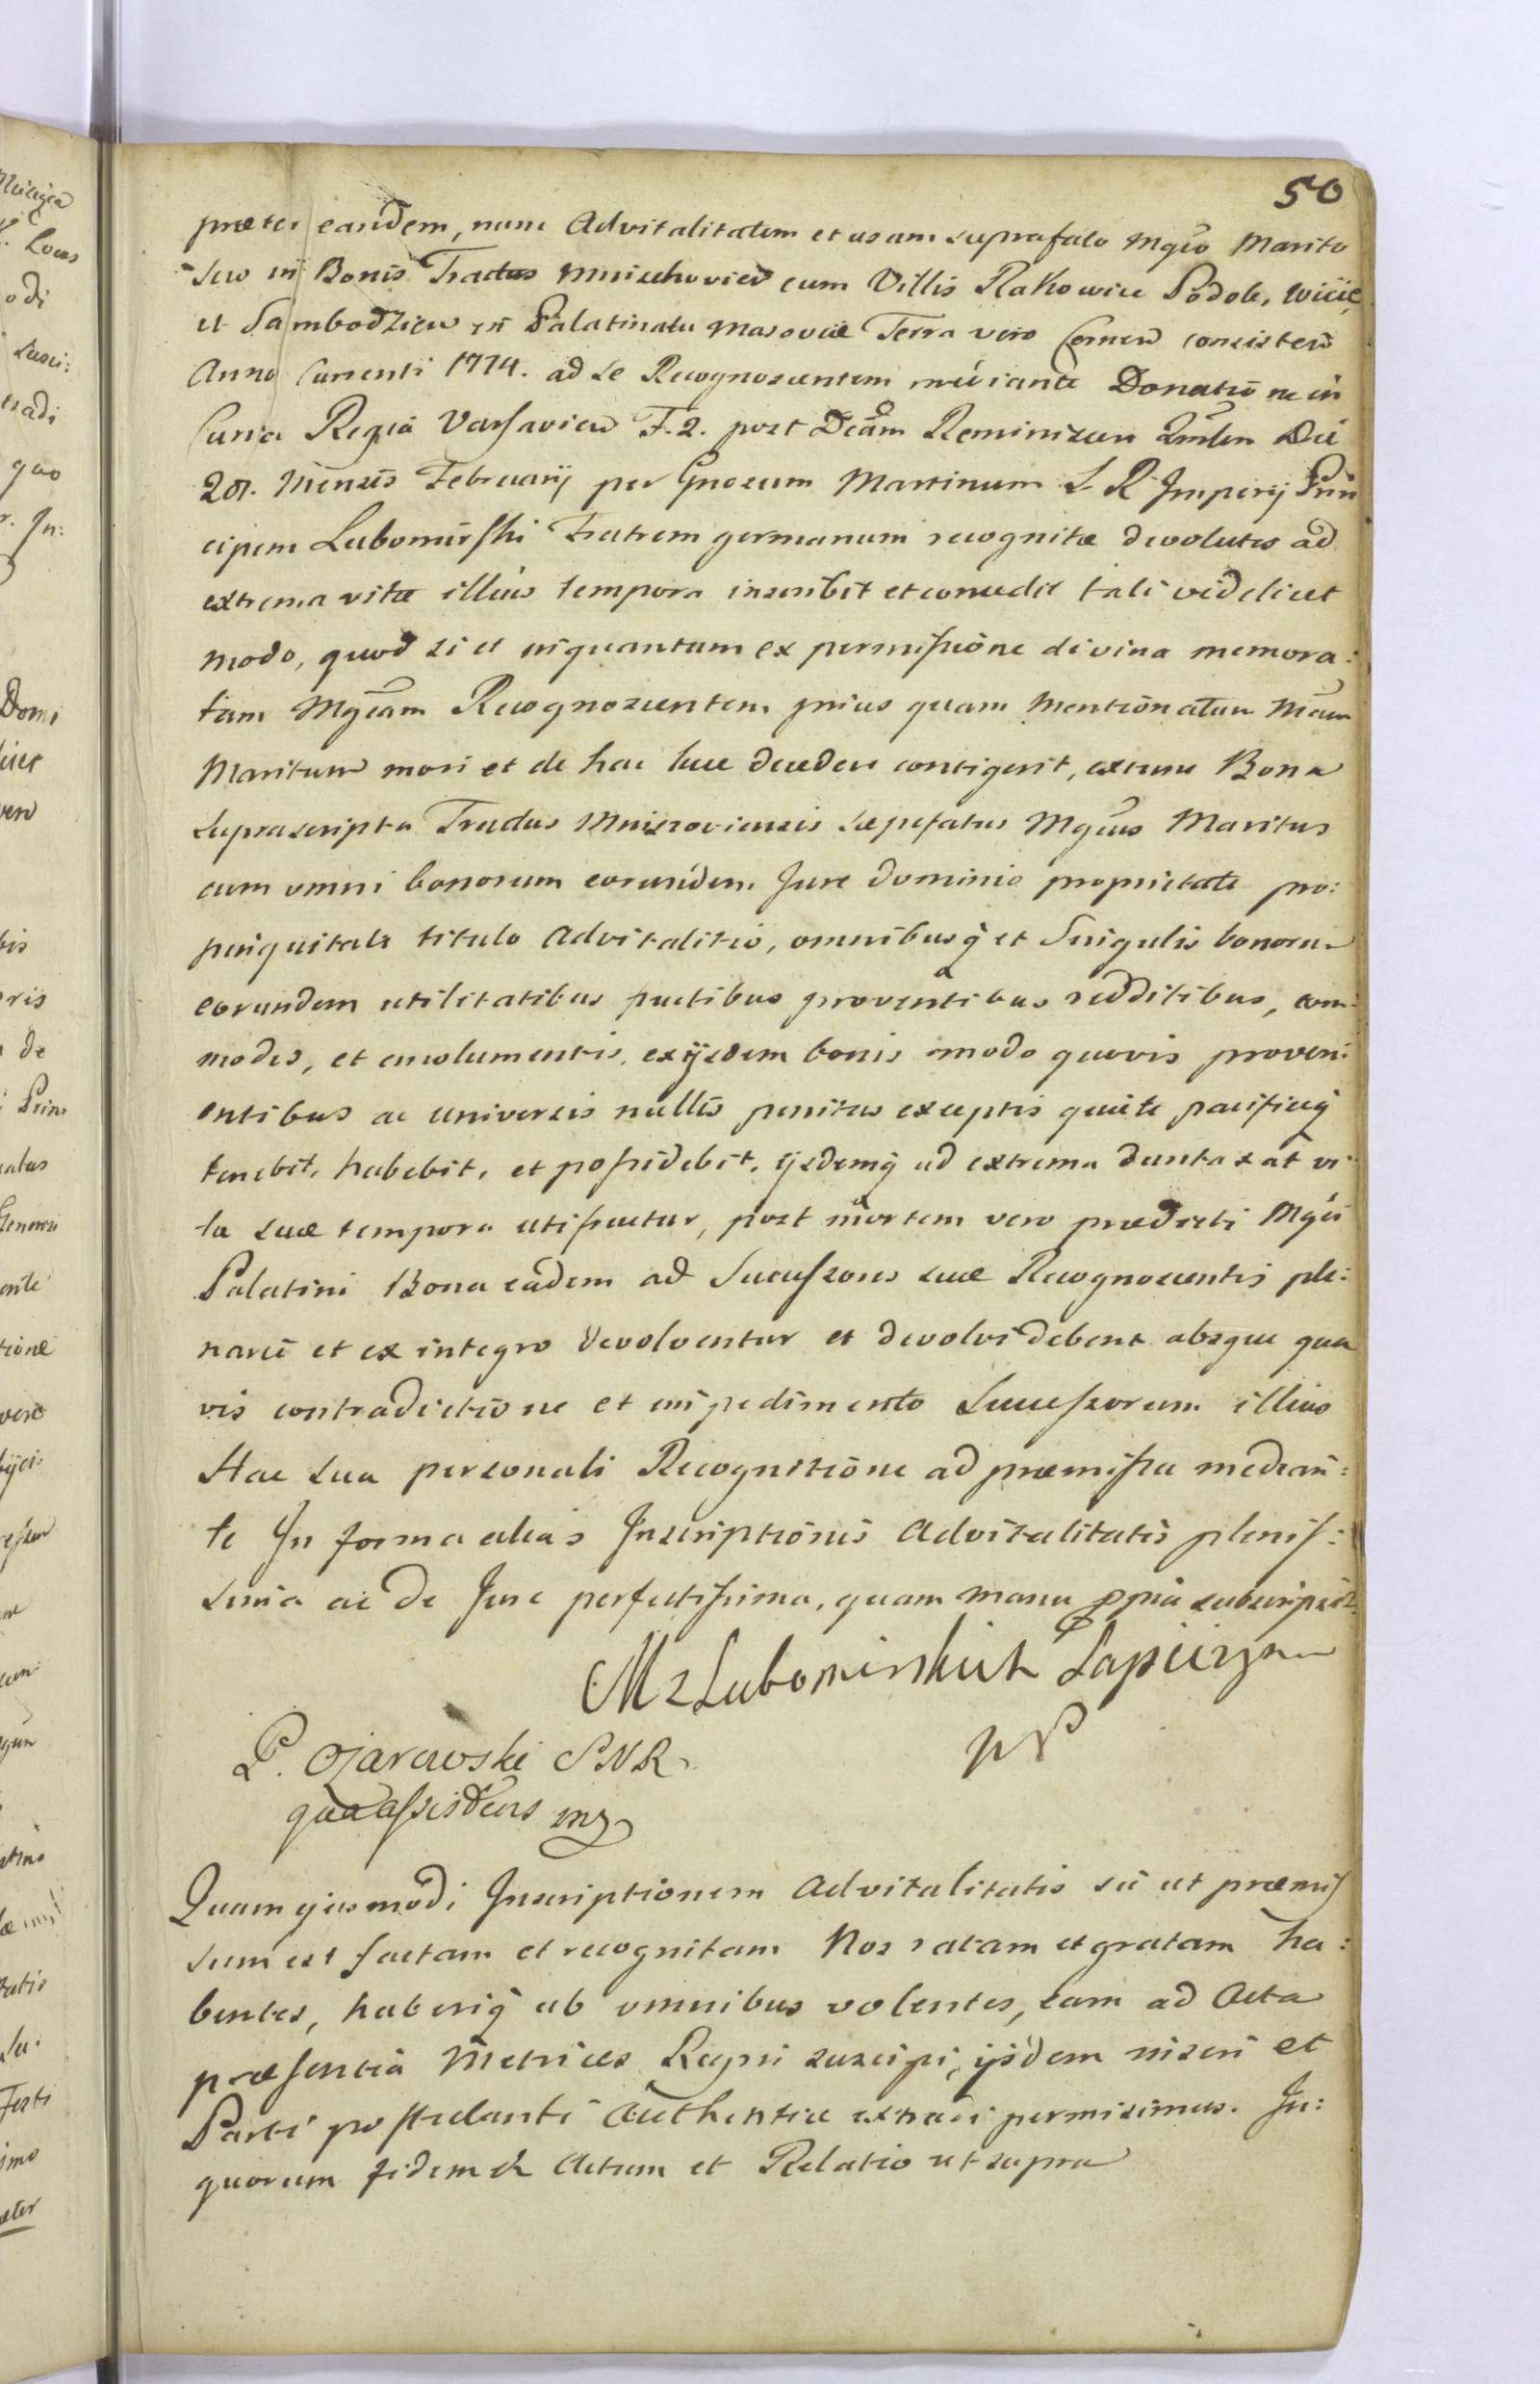 50
præter eandem, nunc Advitalitatem et usam suprafato Mgco Marito
Suo in Bonis Tractus Mniszchovien cum Villis Rakowice Podole, Wicie,
et Sambodzien in Palatinatu Masoviæ Terra vero Cernen consisten
Anno Currenti 1774. ad se Recognoscentem mediante Donatione in
Curia Regia Varsavien F. 2. post Dcam Reminiscere Qmlem Die
28. Mensis Februarij per Gnosum Martinum S. R. Imperij Prin
cipem Lubomirski Fratrem germanum recognitæ devolutes ad
extrema vitæ illius tempora inscribit et concedit tali videlicet
modo, quod si et inquantum ex permissione divina memora:
tam Mgcam Recognoscentem prius quam Mentionatum Mcum
Maritum mori et de hac luce decedere contigerit, extunc Bona
suprascripta Tractus Mniszoviensis sæpefatus Mgcus Maritus
cum omni bonorum eorundem Jure dominio proprietate pro:
pinquitate titulo Advitalitio, omnibusq et Singulis bonorum
eorundem utilitatibus fructibus proventibus redditibus, com:
modis, et emolumentis, ex ijsdem bonis modo quovis proveni:
entibus ac universis nullis penitus exceptis quiete pacificeq
tenebit, habebit, et possidebit, ijsdemq ad extrema duntaxat vi:
tæ suæ tempora utifruetur, post mortem vero prædicti Mgci
Palatini Bona eadem ad Sucessores suæ Recognoscentis ple:
narie et ex integro devolventur et devolvi debent absque qua
vis contradictione et impedimento Successorum illius
Hac sua personali Recognitione ad præmissa median:
te In forma alias Inscriptionis Advitalitatis plenis:
sima ac de Jure perfectissima, quam manu ppria subscripsit
M z Lubomirskich Sapiezyna
P. Ożarowski SNR
qua assidens mp
Quam ejusmodi Inscriptionem Advitalitatis sic ut præmis
sum est factam et recognitam Nos ratam et gratam ha:
bentes, haberiq ab omnibus volentes, eam ad Acta
præsentia Metrices Regni suscipi, ijsdem inseri et
Parti postulanti Authentice extradi permisimus. In:
quorum fidem & Actum et Relatio ut supra